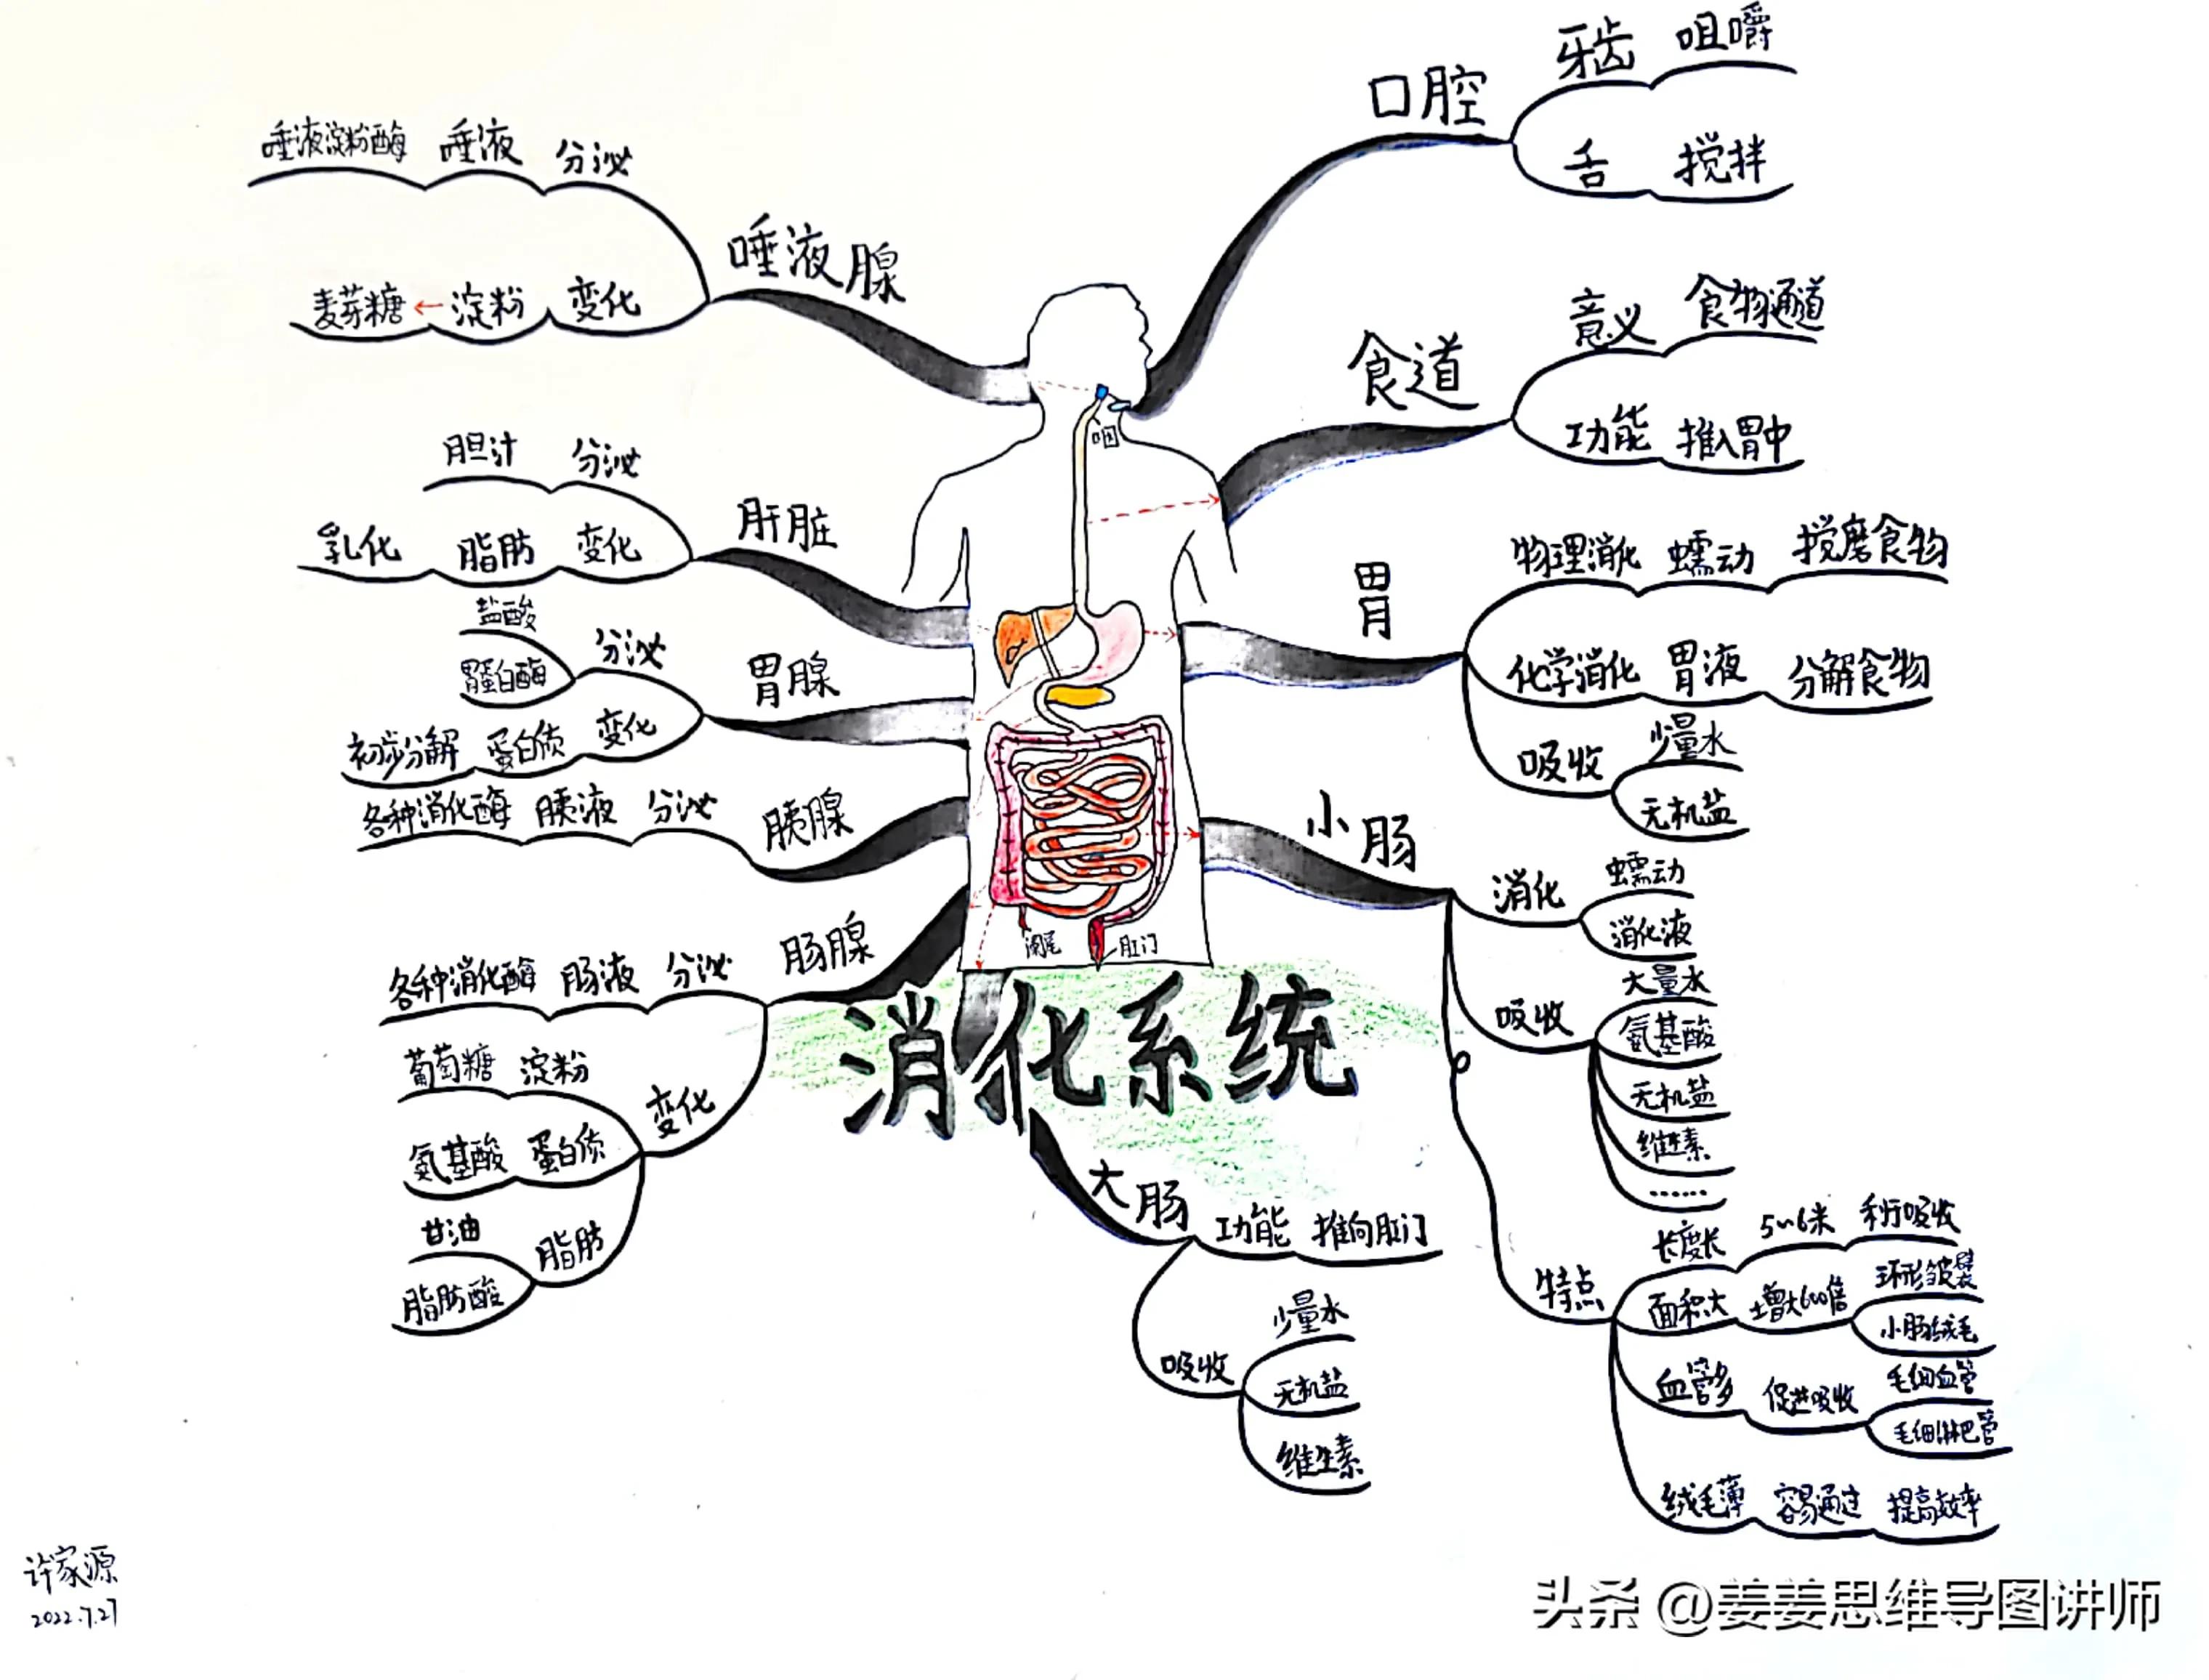 口腔
牙齿 咀嚼
舌 搅拌
食道
意义 食物通道
功能 推入胃中
胃
物理消化 蠕动 搅磨食物
化学消化 胃液 分解食物
吸收
少量水
无机盐
小肠
消化
蠕动
消化液
吸收
大量水
氨基酸
无机盐
维生素
……
特点
长度长 5~6米 利于吸收
面积大 增大600倍
环形皱襞
小肠绒毛
血管多 促进吸收
毛细血管
毛细淋巴管
绒毛薄 容易通过 提高效率
大肠
功能 推向肛门
吸收
少量水
无机盐
维生素
唾液腺
唾液淀粉酶 唾液 分泌
麦芽糖 ← 淀粉 变化
肝脏
胆汁 分泌
乳化 脂肪 变化
胃腺
盐酸
胃蛋白酶
分泌
初步分解 蛋白质 变化
胰腺
各种消化酶 胰液 分泌
肠腺
各种消化酶 肠液 分泌
变化
葡萄糖 淀粉
氨基酸 蛋白质
甘油
脂肪酸
脂肪
咽
阑尾
肛门
消化系统
许家源
2022.7.27
头条 @姜姜思维导图讲师